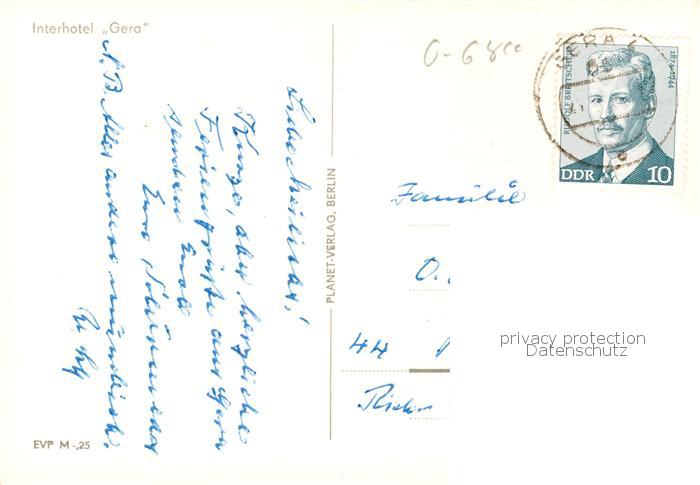 Interhotel „Gera"
Liebe
Kurze, aber herzliche
Feriengrüße aus Gera
senden Euch
Eure
N.B. Alles andere mündlich.
EVP M -,25
PLANET-VERLAG, BERLIN
GERA
RUDOLF BREITSCHEID
1874-1944
DDR 10
Familie
O.
44
privacy protection
Datenschutz